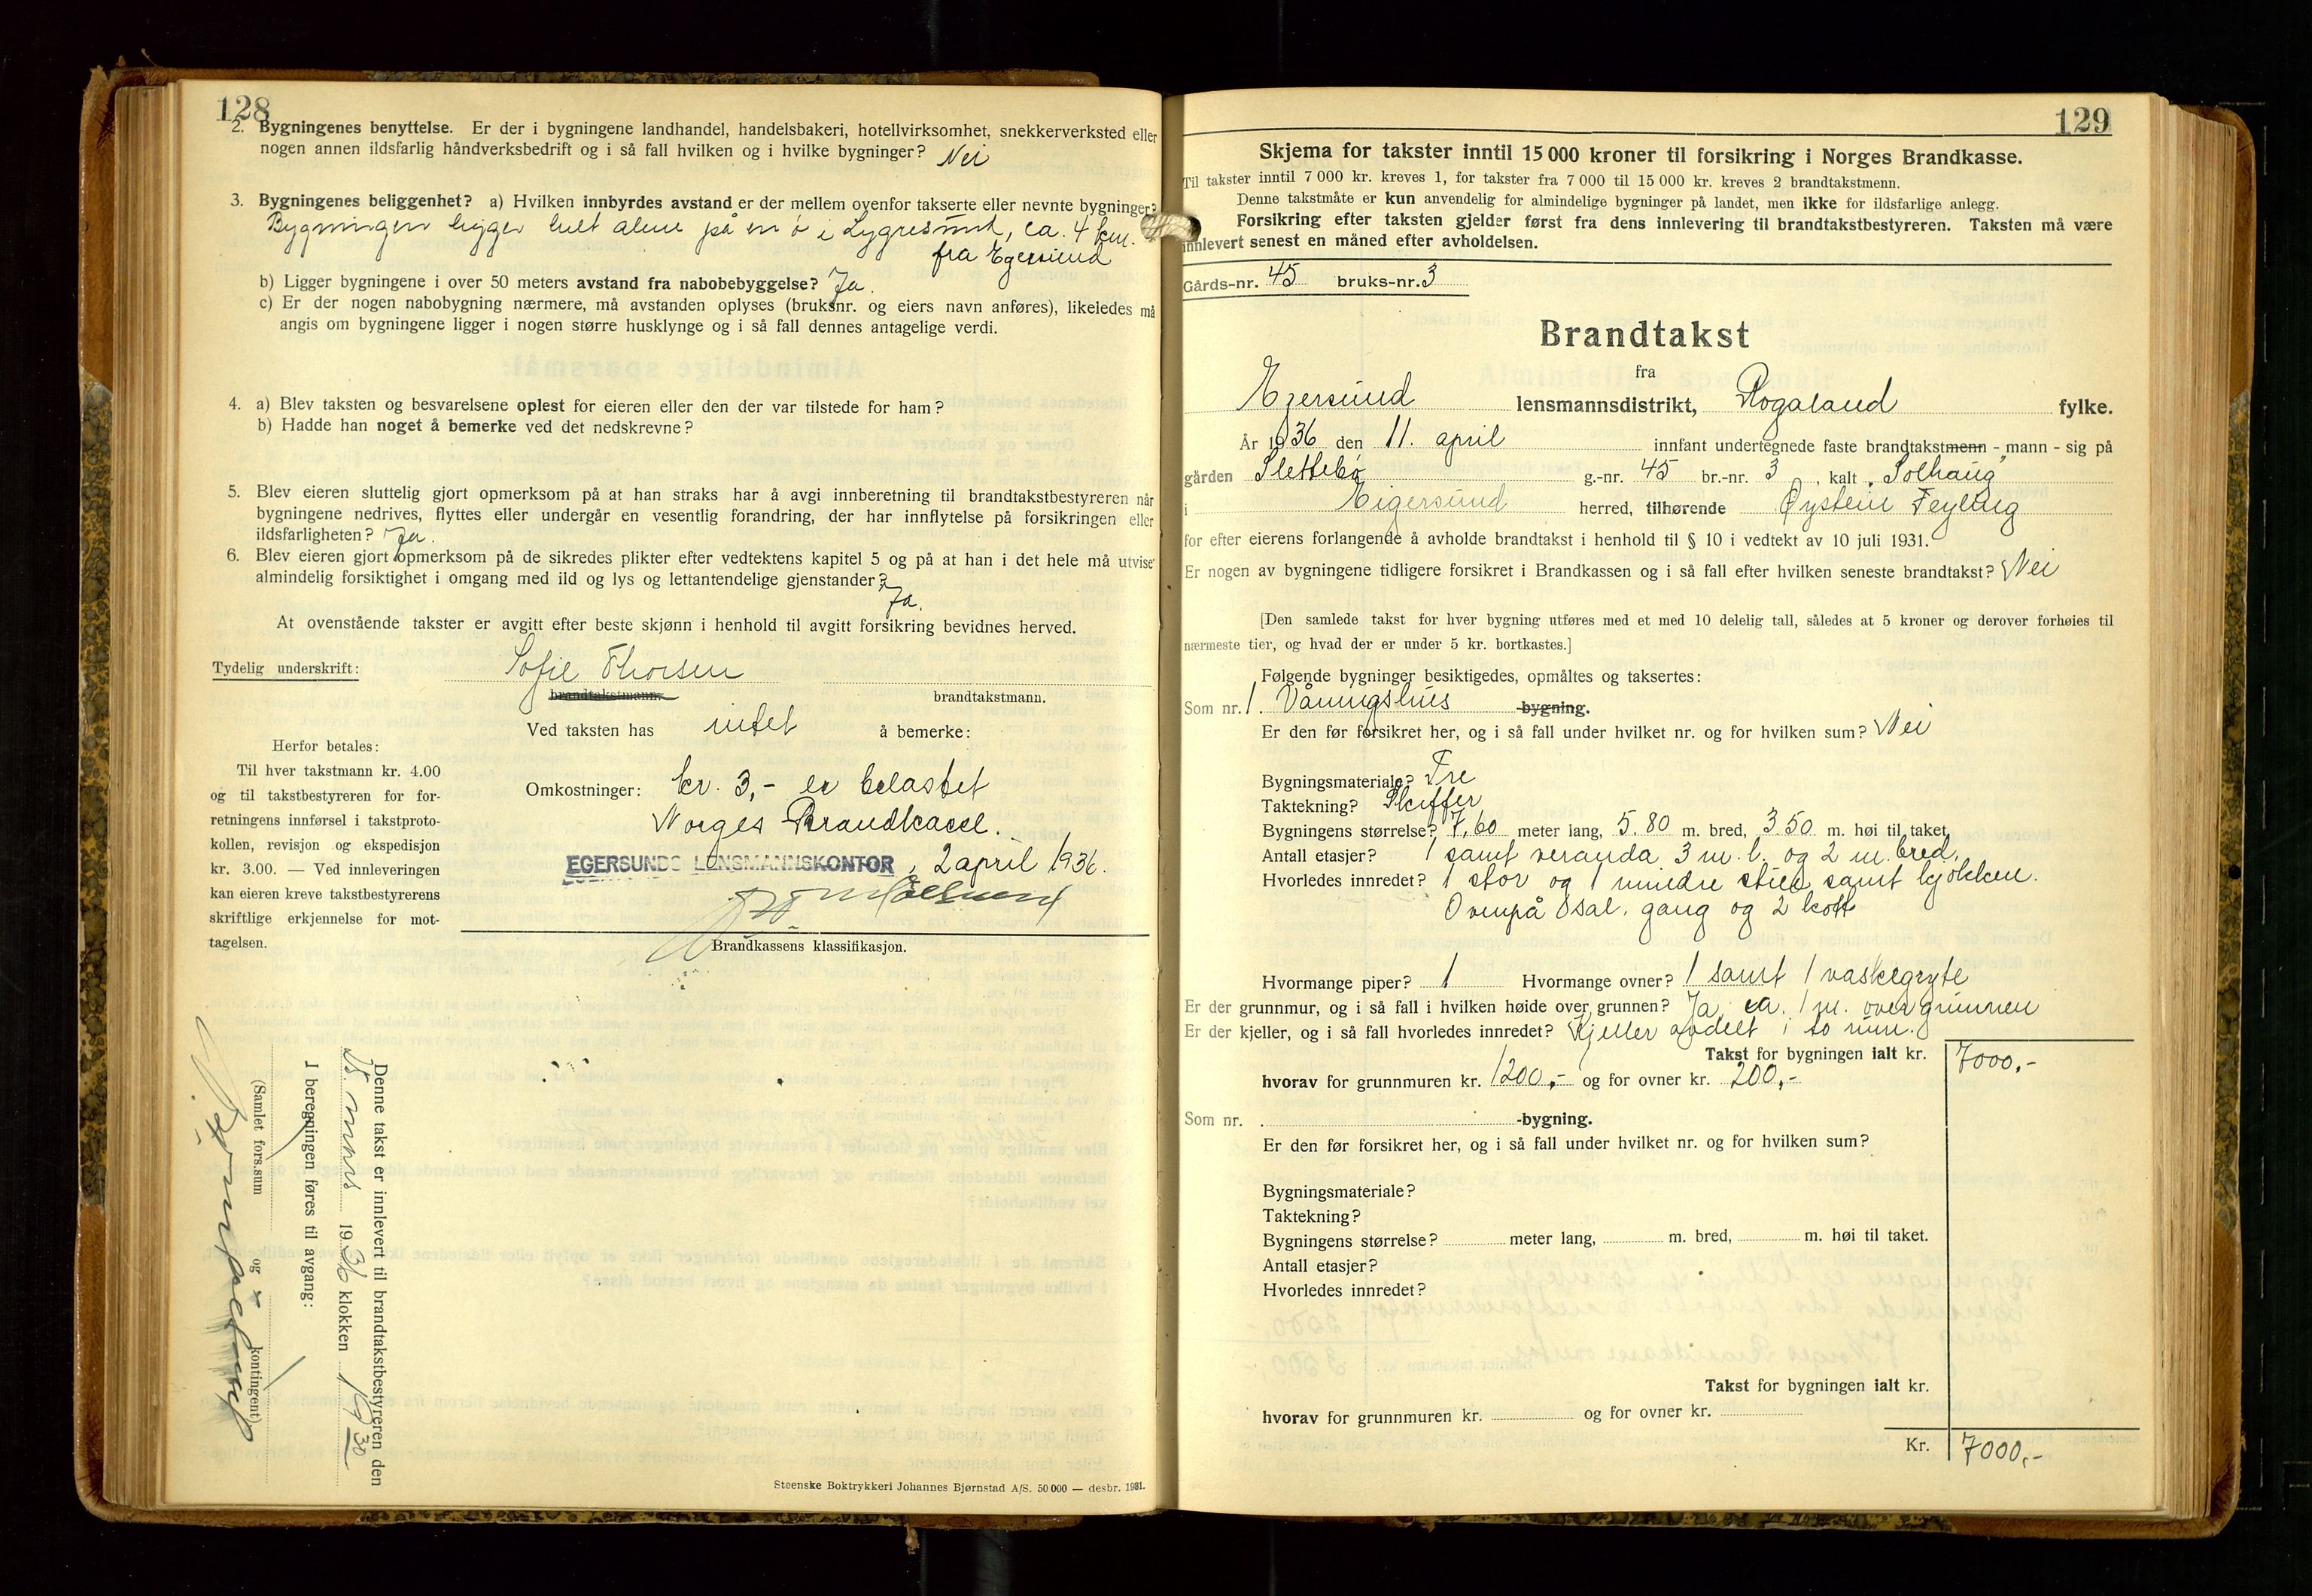 128
2. Bygningenes benyttelse. Er der i bygningene landhandel, handelsbakeri, hotellvirksomhet, snekkerverksted eller
nogen annen ildsfarlig håndverksbedrift og i så fall hvilken og i hvilke bygninger? Nei
3. Bygningenes beliggenhet? a) Hvilken innbyrdes avstand er der mellem ovenfor takserte eller nevnte bygninger?
Bygningen ligger helt alene på en ø i Lygresund, ca. 4 km.
fra Egersund
b) Ligger bygningene i over 50 meters avstand fra nabobebyggelse? Ja.
c) Er der nogen nabobygning nærmere, må avstanden oplyses (bruksnr. og eiers navn anføres), likeledes må
angis om bygningene ligger i nogen større husklynge og i så fall dennes antagelige verdi.
4. a) Blev taksten og besvarelsene oplest for eieren eller den der var tilstede for ham?
b) Hadde han noget å bemerke ved det nedskrevne?
5. Blev eieren sluttelig gjort opmerksom på at han straks har å avgi innberetning til brandtakstbestyreren når
bygningene nedrives, flyttes eller undergår en vesentlig forandring, der har innflytelse på forsikringen eller
ildsfarligheten? Ja.
6. Blev eieren gjort opmerksom på de sikredes plikter efter vedtektens kapitel 5 og på at han i det hele må utvise
almindelig forsiktighet i omgang med ild og lys og lettantendelige gjenstander?
Ja.
At ovenstående takster er avgitt efter beste skjønn i henhold til avgitt forsikring bevidnes herved.
Tydelig underskrift: Sofie Thorsen
brandtakstmann. brandtakstmann.
Ved taksten has intet å bemerke:
Herfor betales:
Til hver takstmann kr. 4.00
og til takstbestyreren for for-
retningens innførsel i takstproto-
kollen, revisjon og ekspedisjon
kr. 3.00. — Ved innleveringen
kan eieren kreve takstbestyrerens
skriftlige erkjennelse for mot-
tagelsen.
Omkostninger: kr. 3,- er belastet
Norges Brandkasse.
EGERSUNDS LENSMANNSKONTOR, 2 april 1936.
Brandkassens klassifikasjon.
Denne takst er innlevert til brandtakstbestyreren den
mars 1936 klokken
I beregningen føres til avgang:
(Samlet fors.sum og kontingent)
Steenske Boktrykkeri Johannes Bjørnstad A/S. 50 000 — desbr. 1931.
129
Skjema for takster inntil 15 000 kroner til forsikring i Norges Brandkasse.
Til takster inntil 7 000 kr. kreves 1, for takster fra 7 000 til 15 000 kr. kreves 2 brandtakstmenn.
Denne takstmåte er kun anvendelig for almindelige bygninger på landet, men ikke for ildsfarlige anlegg.
Forsikring efter taksten gjelder først fra dens innlevering til brandtakstbestyreren. Taksten må være
innlevert senest en måned efter avholdelsen.
Gårds-nr. 45 bruks-nr. 3
Brandtakst
fra
Egersund lensmannsdistrikt, Rogaland fylke.
År 1936 den 11. april innfant undertegnede faste brandtakstmenn - mann - sig på
gården Slettebø g.-nr. 45 br.-nr. 3, kalt „Solhaug"
i Eigersund herred, tilhørende Øystein Feyling
for efter eierens forlangende å avholde brandtakst i henhold til § 10 i vedtekt av 10 juli 1931.
Er nogen av bygningene tidligere forsikret i Brandkassen og i så fall efter hvilken seneste brandtakst? Nei
[Den samlede takst for hver bygning utføres med et med 10 delelig tall, således at 5 kroner og derover forhøies til
nærmeste tier, og hvad der er under 5 kr. bortkastes.]
Følgende bygninger besiktigedes, opmåltes og taksertes:
Som nr. 1. Våningshus -bygning.
Er den før forsikret her, og i så fall under hvilket nr. og for hvilken sum? Nei
Bygningsmateriale? Tre
Taktekning? Skiffer
Bygningens størrelse? 7,60 meter lang, 5.80 m. bred, 3.50 m. høi til taket.
Antall etasjer? 1 samt veranda 3 m. l. og 2 m. bred.
Hvorledes innredet? 1 stor og 1 mindre stue samt kjøkken.
Ovenpå 1 sal. gang og 2 kott
Hvormange piper? 1 Hvormange ovner? 1 samt 1 vaskegryte
Er der grunnmur, og i så fall i hvilken høide over grunnen? Ja ca. 1 m. over grunnen
Er der kjeller, og i så fall hvorledes innredet? Kjeller avdelt i to rum.
Takst for bygningen ialt kr. 7000,-
hvorav for grunnmuren kr. 1200,- og for ovner kr. 200,-
Som nr. -bygning.
Er den før forsikret her, og i så fall under hvilket nr. og for hvilken sum?
Bygningsmateriale?
Taktekning?
Bygningens størrelse? meter lang, m. bred, m. høi til taket.
Antall etasjer?
Hvorledes innredet?
Takst for bygningen ialt kr.
hvorav for grunnmuren kr. og for ovner kr.
Kr. 7000,-